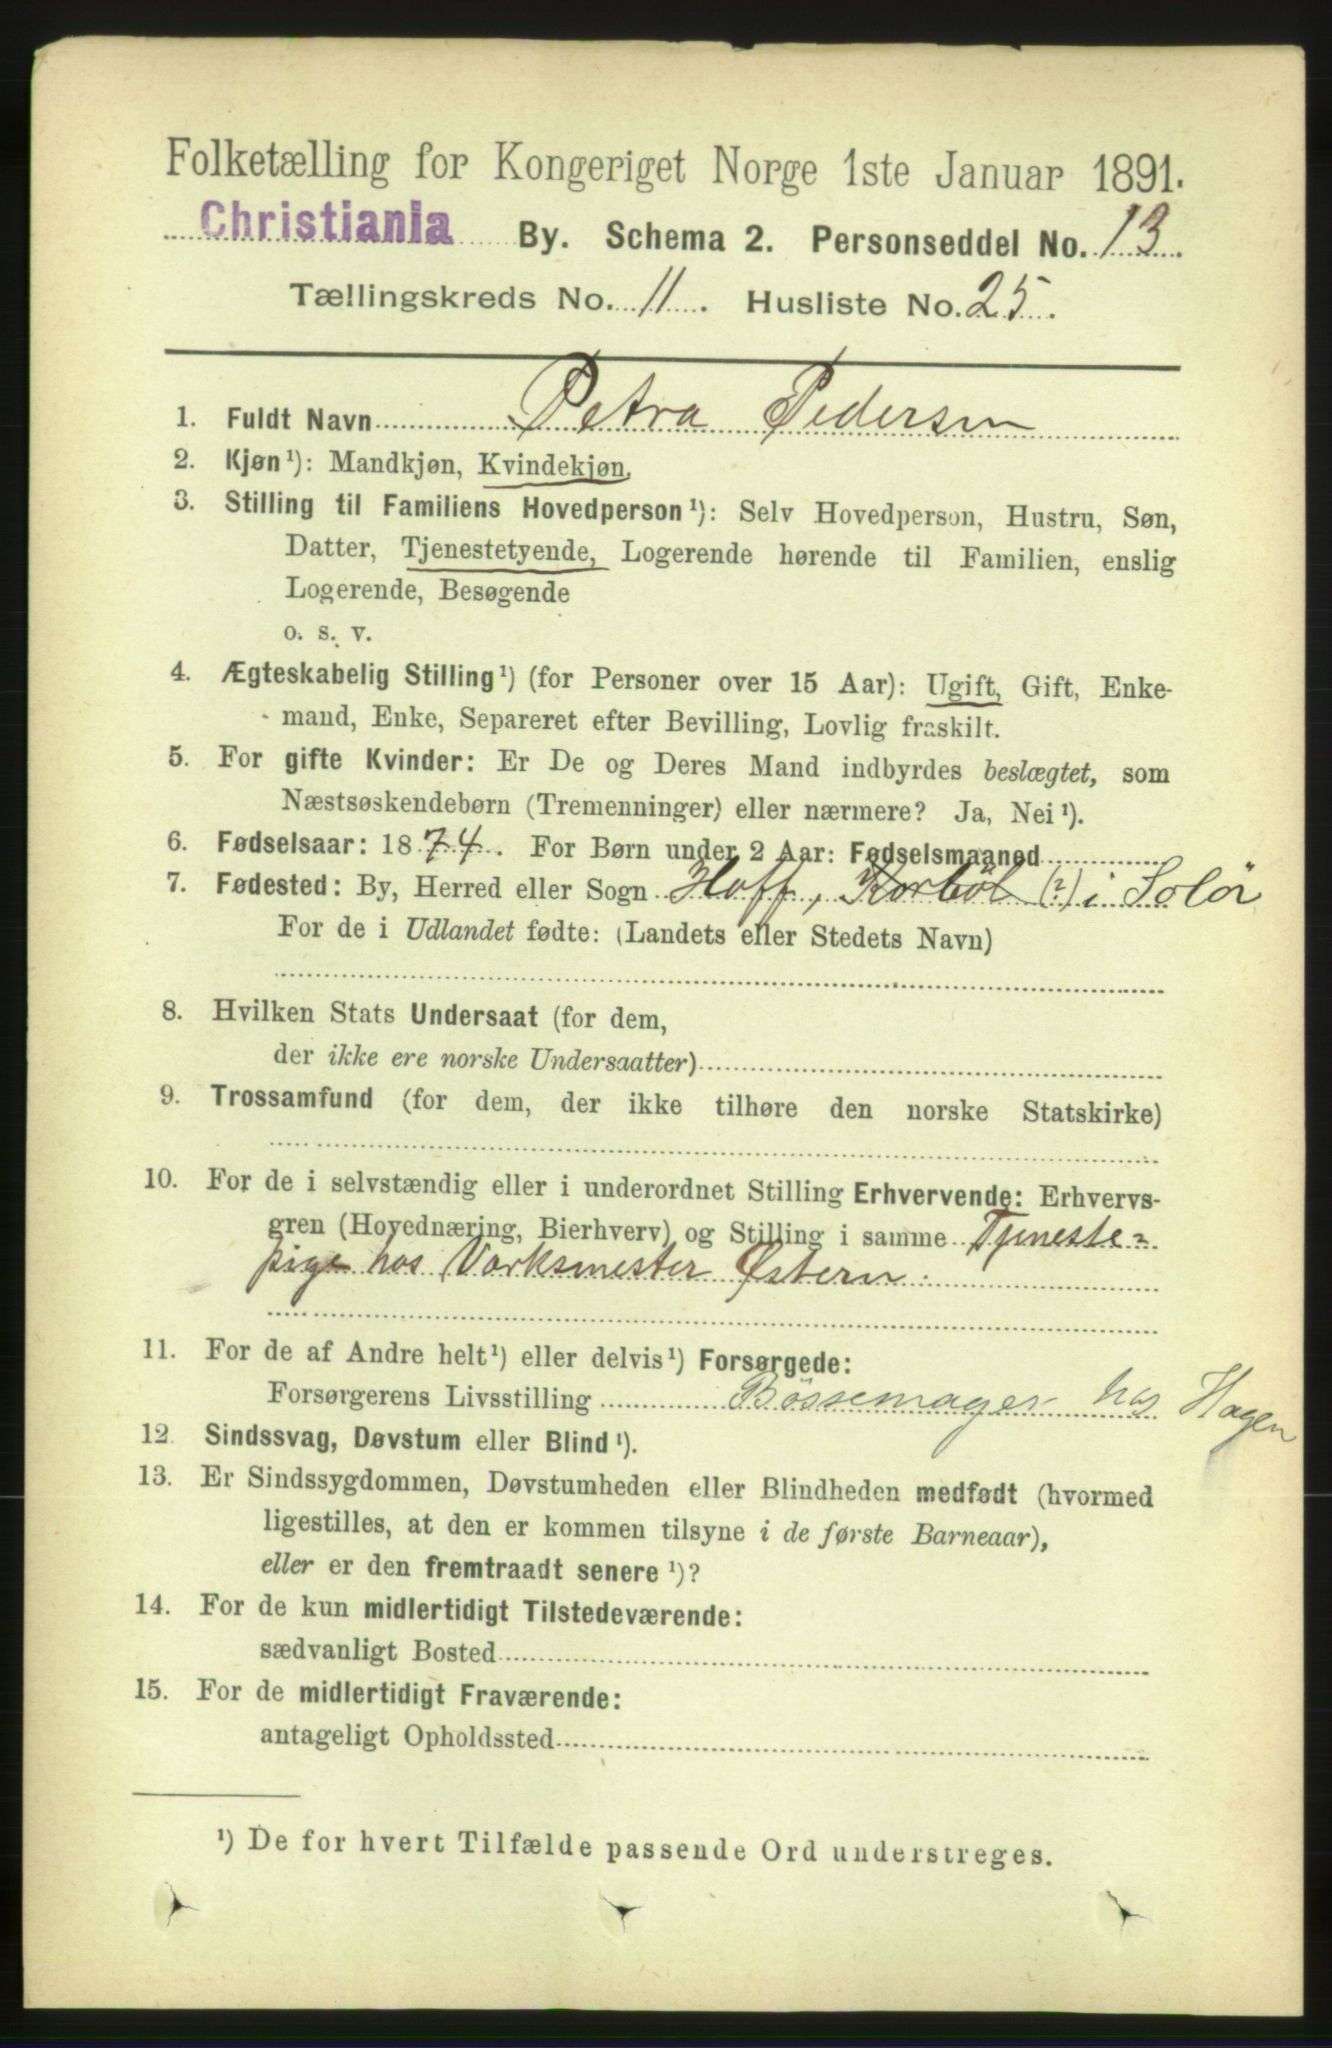 Folketælling for Kongeriget Norge 1ste Januar 1891.
Christiania By. Schema 2. Personseddel No. 13.
Tællingskreds No. 11. Husliste No. 25.
1. Fuldt Navn Petra Pedersen
2. Kjøn¹): Mandkjøn, Kvindekjøn.
3. Stilling til Familiens Hovedperson¹): Selv Hovedperson, Hustru, Søn,
Datter, Tjenestetyende, Logerende hørende til Familien, enslig
Logerende, Besøgende
o. s. v.
4. Ægteskabelig Stilling¹) (for Personer over 15 Aar): Ugift, Gift, Enke-
mand, Enke, Separeret efter Bevilling, Lovlig fraskilt.
5. For gifte Kvinder: Er De og Deres Mand indbyrdes beslægtet, som
Næstsøskendebørn (Tremenninger) eller nærmere? Ja, Nei¹).
6. Fødselsaar: 1874. For Børn under 2 Aar: Fødselsmaaned
7. Fødested: By, Herred eller Sogn Hoff, Korböl (?) i Solör
For de i Udlandet fødte: (Landets eller Stedets Navn)
8. Hvilken Stats Undersaat (for dem,
der ikke ere norske Undersaatter)
9. Trossamfund (for dem, der ikke tilhøre den norske Statskirke)
10. For de i selvstændig eller i underordnet Stilling Erhvervende: Erhvervs-
gren (Hovednæring, Bierhverv) og Stilling i samme Tjeneste=
pige hos Værksmester Østern.
11. For de af Andre helt¹) eller delvis¹) Forsørgede:
Forsørgerens Livsstilling Bössemager hos Hagen
12. Sindssvag, Døvstum eller Blind¹).
13. Er Sindssygdommen, Døvstumheden eller Blindheden medfødt (hvormed
ligestilles, at den er kommen tilsyne i de første Barneaar),
eller er den fremtraadt senere¹)?
14. For de kun midlertidigt Tilstedeværende:
sædvanligt Bosted
15. For de midlertidigt Fraværende:
antageligt Opholdssted
¹) De for hvert Tilfælde passende Ord understreges.